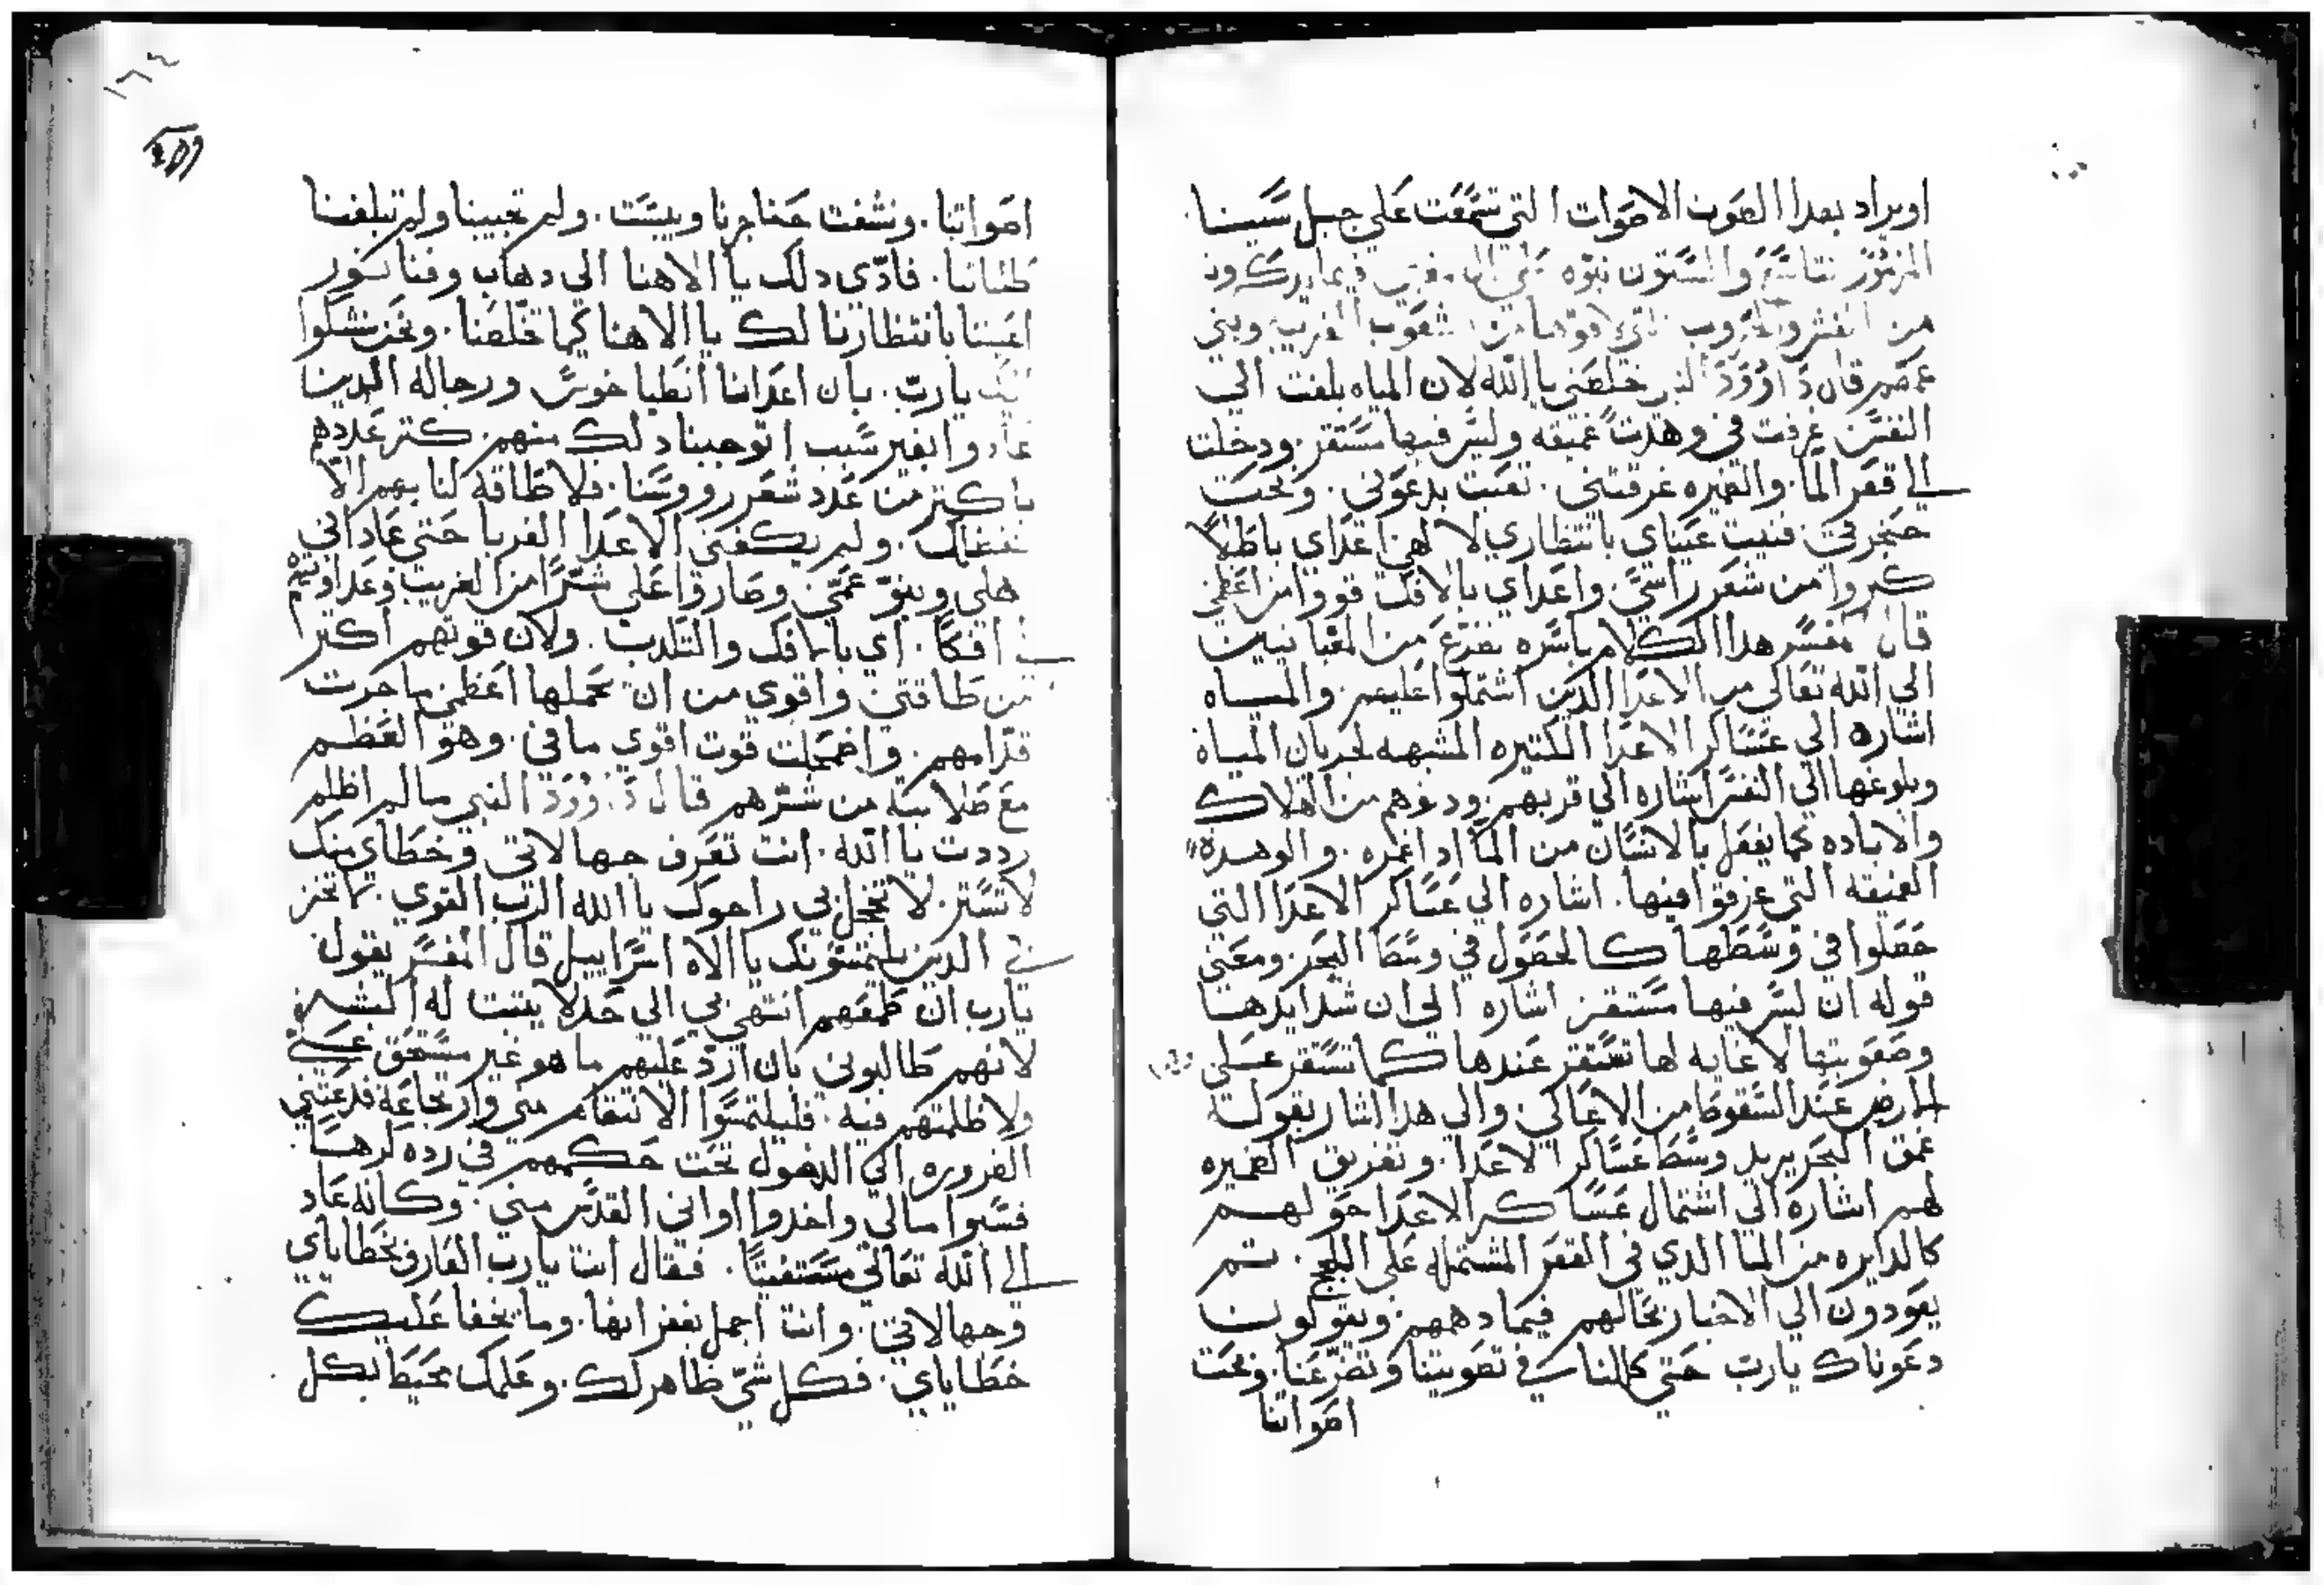 اويراد بهدا الصوت الاصوات التي سمعت علي جبل سينا
المزمور التاسع والستون نبوه علي
من
عمهم قال داوود النبي خلصني يا الله لان المياه بلغت الي
النفس غرقت في وهدت عميقه وليس فيها مستقر ودخلت
الي قعر الما والغمره غرقتني تعبت بدعوتي وبحت
حنجرتي فنيت عيناي بانتظاري لالاهي اعداي باطلاً
كتروا من شعر راسي واعداي بالافك قووا من اعظمي
قال المفسر هدا الكلام باسره تضرع من المقبانيين
الي الله تعالي من الاعدا الدين اشتملوا عليهم والمياه
اشاره الي عساكر الاعدا الكتيره المشبهه لجريان المياه
وبلوغها الي النفس اشاره الي قربهم ودنوهم من الهلاك
والاباده كما يفعل بالانسان من الما ادا غمره والوهدة
العميقه التي غرقوا فيها اشاره الي عساكر الاعدا التي
حصلوا في وسطها كالحصول في وسط البحر ومعني
قوله ان ليس فيها مستقر اشاره الي ان شدايدها
وصعوبتها لا غايه لها تستقر عندها كما تستقر علي
الارض عند السقوط من الاعالي والي هدا اشار بقوله
عمق البحر يريد وسط عساكر الاعدا وتغريق الغميره
لهم اشاره الي اشتمال عساكر الاعدا حولهم
كالدايره من الما الدي في القعر المشتمله علي اللجج تم
يعودون الي الاخبار بحالهم فيما دهمهم ويقولون
دعوناك يارب حتي كللنا في تصويتنا وتضرعنا وبحت
اصواتنا
اصواتنا ونشفت حناجرنا ويبست ولم تجيبنا ولم تبلغنا
طلباتنا فادي دلك يا الاهنا الي دهاب وفنا نور
اعيننا بانتظارنا لك يا الاهنا كيما تخلصنا ونحن نشكوا
اليك يارب بان اعداينا انطياخوس ورجاله الدين
عادوا بغير سبب اتوجبنا دلك منهم كتر عددهم
باكتر من عدد شعر رووسنا فلا طاقه لنا بهم الا
بفضلك ولم يكفني الاعدا الغربا حتي عاداني
اهلي وبنو عمي وصاروا علي شراً من الغريب وعداوتهم
لي افكاً اي بالافك والتلدب ولان قوتهم اكتر
من طاقتي واقوي من ان تحملها اعظمي ما جرت
قدامهم واضمحلت قوت اقوي ما في وهو العظم
مع صلابته من شرهم قال داوود النبي ما لم اظلم
رددت يا الله انت تعرف جهالاتي وخطاي منك
لا تستر لا تخجل بي راجوك يا الله الرب القوي لا تخز
بي الدين يلتمسونك يا الاه اسراييل قال المفسر يقول
يارب ان طمعهم انتهي بي الي حد لا يتبت له البشر
لانهم طالبوني بان ارد عليهم ما هو غير مستحق علي
ولا ظلمتهم فيه فليلتمسوا الانتقام مني وارتجاعه فدعتني
الضروره الي الدخول تحت حكمهم في رده كرها
فسبوا مالي واخدوا اواني القدس مني وكانه عاد
الي الله تعالي مستغيتاً فقال انت يارب العارف بخطاياي
وجهالاتي وانت اجمل بغفرانها وما يخفا عليك
خطاياي فكل شي ظاهر لك وعلمك محيط بكل